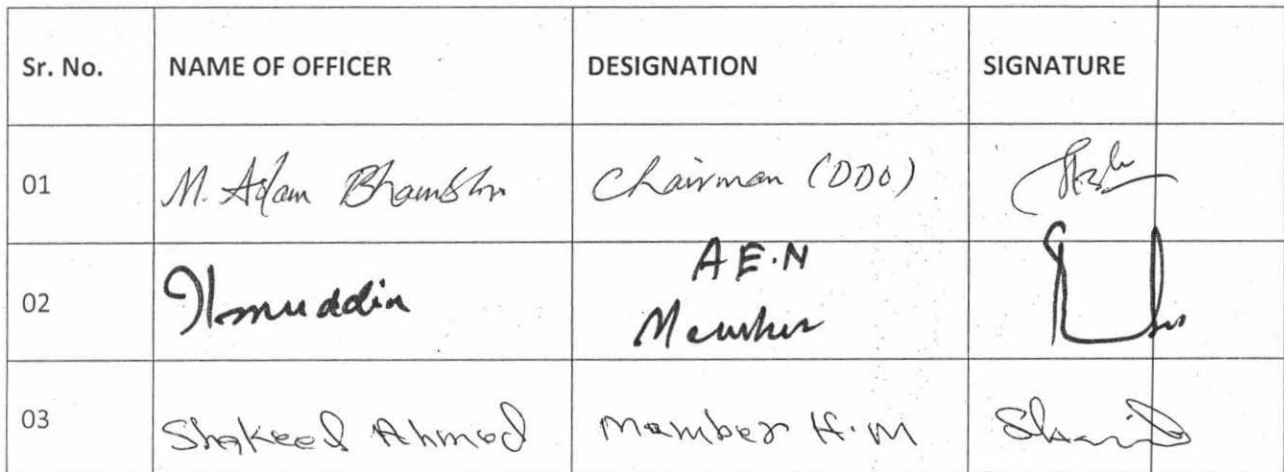 Sr. No. NAME OF OFFICER DESIGNATION SIGNATURE
01 M. Aslam Bhambhro Chairman (DDO)
02 Ilmuddin A E.N
Member
03 Shakeel Ahmed Member H.M